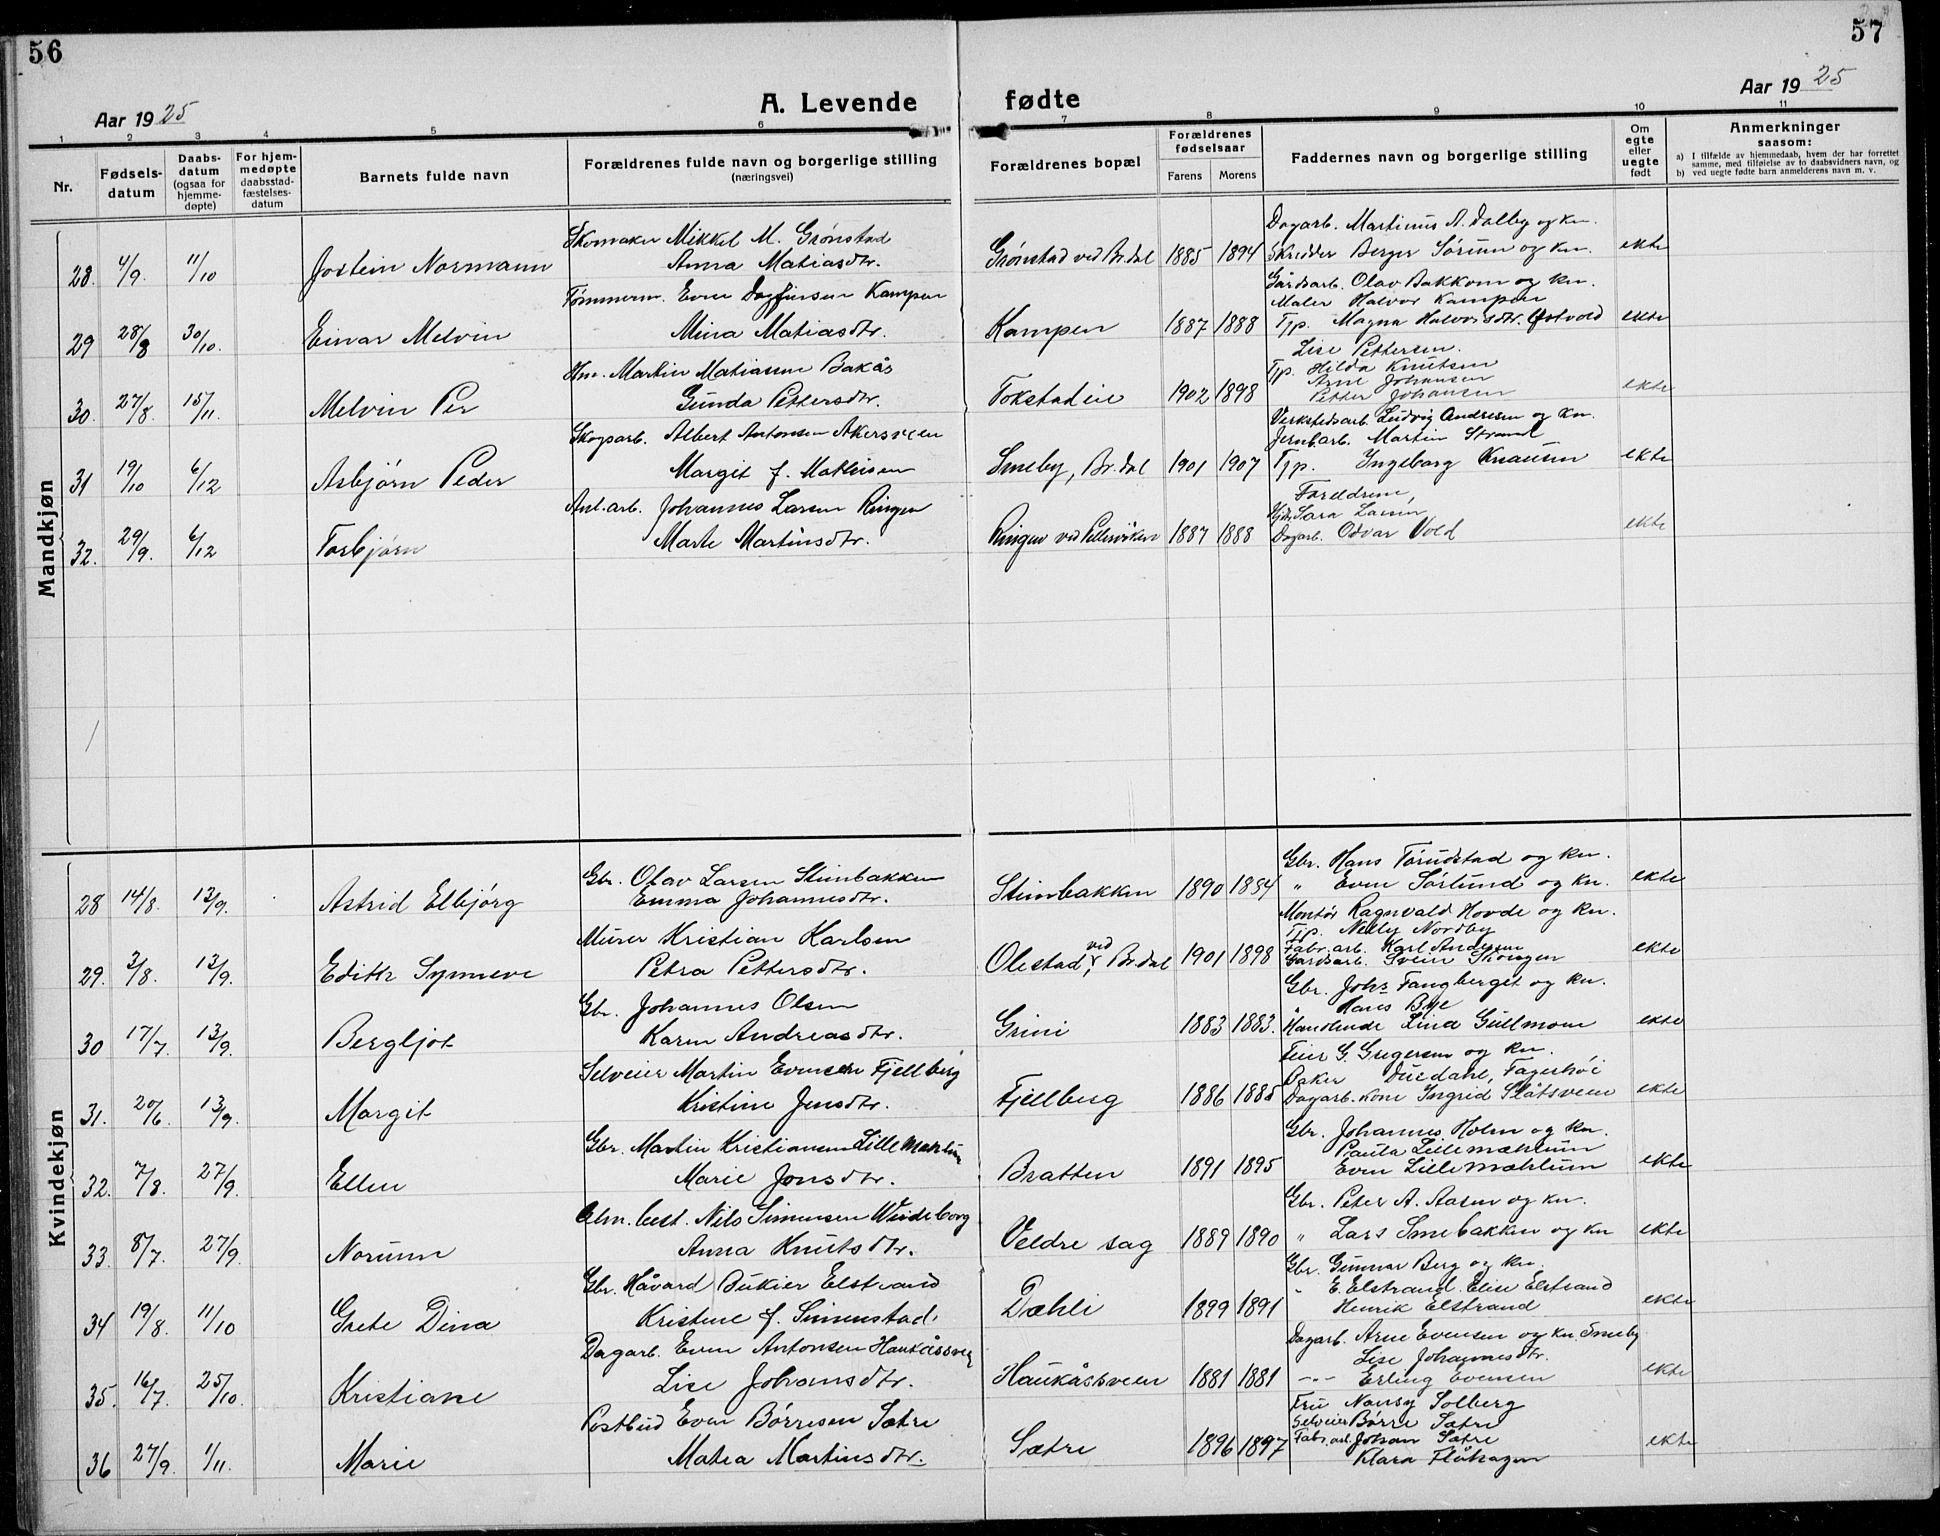 56
57
Aar 1925
A. Levende fødte
Aar 1925
1 2 3 4 5 6 7 8 9 10 11
Nr.
Fødsels-datum
Daabs-datum (ogsaa for hjemme-døpte)
For hjem-medøpte daabsstad-fæstelses-datum
Barnets fulde navn
Forældrenes fulde navn og borgerlige stilling (næringsvei)
Forældrenes bopæl
Forældrenes fødselsaar
Farens Morens
Faddernes navn og borgerlige stilling
Om egte eller uegte født
Anmerkninger saasom:
a) I tilfælde av hjemmedaab, hvem der har forrettet samme, med tilføielse av to daabsvidners navn, og
b) ved uegte fødte barn anmelderens navn m. v.
Mandkjøn
28. 4/9. 11/10 Jostein Normann
Skomaker Mikkel M. Grønstad
Anna Matiasdtr.
Grønstad ved Br.dal 1885 1894
Dagarb. Martinus A. Dalby og kn.
Skredder Berger Sørum og kn. ekte
29 28/8 30/10. Einar Melvin
Tømmerm. Even Dagfinsen Kampen
Mina Matiasdtr.
Kampen 1887 1888
Gårdsarb. Olav Bakkom og kn.
Maler Halvor Kampen
Tjp. Magna Halvorsdtr. Østvold ekte
30. 27/8. 15/11. Melvin Per
Hm. Martin Matiassen Bakås
Gunda Pettersdtr.
Tokstadeie 1902 1898
Lise Pettersen.
Tjp. Hilda Knutsen
Tjp. Arne Johansen
Petter Johansen ekte
31 19/10 6/12 Asbjørn Peder
Skogsarb. Albert Antonsen Akersveen
Margit f. Mathisen
Smeby, Br.dal 1901 1907
Verkstedsarb. Ludvig Andresen og kn.
Jernb.arb. Martin Strand
Tjp. Ingeborg Knausen ekte
32. 29/9. 6/12 Torbjørn
Anl.arb. Johannes Larsen Ringen
Marte Martinsdtr.
Ringen ved Pellerviken 1887 1888
Foreldrene,
Sara Larsen,
Dagarb. Odvar Vold ekte
Kvindekjøn
28 14/8. 13/9. Astrid Elbjørg
Gbr. Olav Larsen Stenbakken
Emma Johannesdtr.
Stenbakken 1890 1894
Gbr. Hans Tørudstad og kn.
" Even Sørlund og kn. ekte
29. 3/8. 13/9. Edith Synneve
Murer Kristian Karlsen
Petra Pettersdtr.
Olestad, ved Br.dal 1901 1898
Montør Ragnvald Hovde og kn.
Tjp. Nelly Nordby
Fabr.arb. Karl Andersen
Gårdsarb. Svein Skougen ekte
30 17/7. 13/9. Bergljot
Gbr. Johannes Olsen
Karen Andreasdtr.
Grini 1883 1883.
Gbr. Johs Fangberget og kn.
" Hans Bye
Handlende Lina Gullmoen ekte
31. 20/6. 13/9. Margit
Selveier Martin Evensen Fjellberg
Kristine Jensdtr.
Fjellberg 1886 1885
Feier G. Gregersen og kn.
Baker Duedahl, Fagerhøi
Dagarb. kone Ingrid Slåtsveen ekte
32. 7/8. 27/9. Ellen
Gbr. Martin Kristiansen Lille Mæhlum
Marie Jonsdtr.
Bratten 1891 1895
Gbr. Johannes Holm og kn.
Paula Lillemæhlum
Even Lillemæhlum ekte
33. 8/7. 27/9. Norunn
Alm. best. Nils Simensen Windeborg
Anna Knutsdtr.
Veldre sag 1889 1890
Gbr. Peter A. Aasen og kn.
" Lars Smebakken og kn ekte
34 19/8. 11/10 Grete Dina
Gbr. Håvard Bukier Elstrand
Kristine f. Simenstad.
Dæhli 1899 1891
Gbr. Gunnar Berg og kn.
" E. Elstrand. Elise Elstrand
Henrik Elstrand ekte
35. 16/7. 25/10. Kristiane
Dagarb. Even Antonsen Haukåssveen
Lise Johansdtr.
Haukåssveen 1881 1881
Dagarb. Arne Evensen og kn Smeby
Lise Johannesdtr.
-"- Erling Evensen ekte
36 27/9. 1/11. Marie
Postbud Even Børresen Sætre
Matea Martinsdtr.
Sætre 1896 1897
Fru Nansy Solberg
Selveier Børre Sætre
Fabr.arb. Johan Sætre
Klara Flåhagen ekte